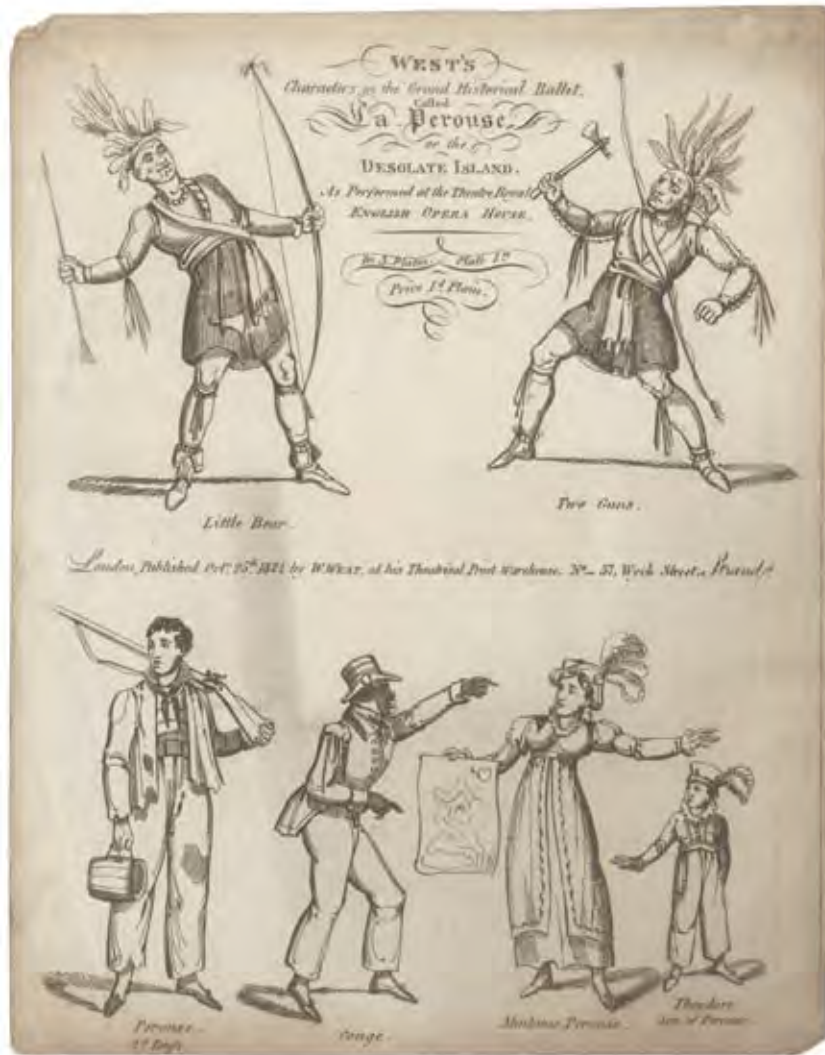 WEST'S
Characters in the Grand Historical Ballet,
Called
La Perouse,
or the
DESOLATE ISLAND.
As Performed at the Theatre Royal
ENGLISH OPERA HOUSE.
In 3 Plates. Plate 1st
Price 1d Plain.
Little Bear.
Two Guns.
London, Published Octr 25th by W. WEST, at his Theatrical Print Warehouse. No 57, Wych Street, Strand
Perouse
Conge.
Madame Perouse.
Theodore
Son of Perouse